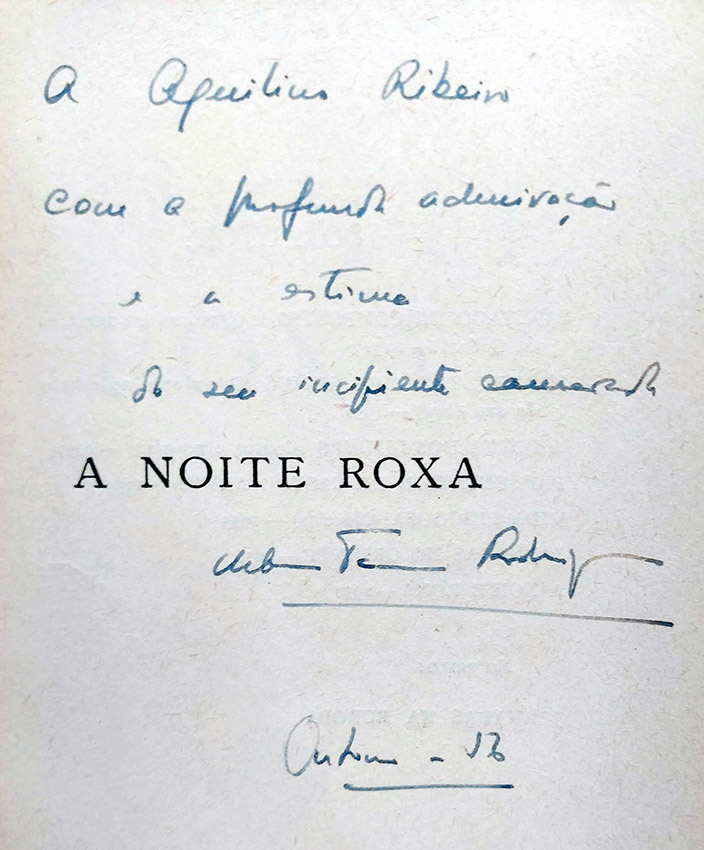 A Aquilino Ribeiro
com a profunda admiração
e a estima
do seu incipiente camarada
A NOITE ROXA
Urbano Tavares Rodrigues
Outono - 56